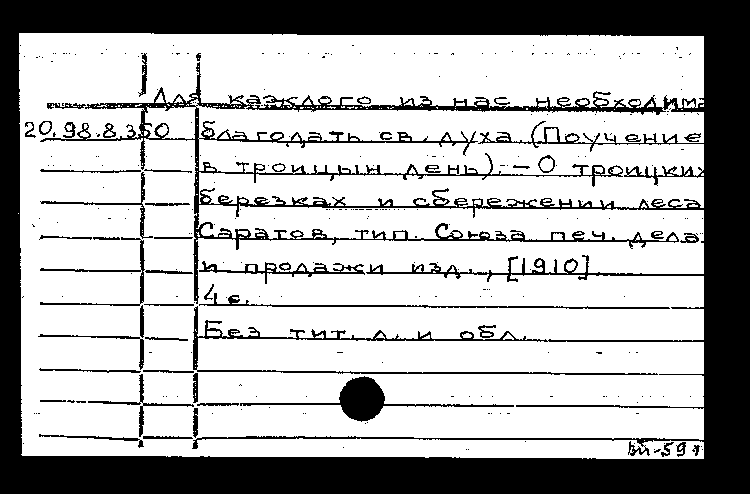 Для каждого из нас необходима
20.98.8.350 благодать св. духа (Поучение
в троицын день). – О троицких
березках и сбережении леса
Саратов, тип. Союза печ. дела
и продажи изд., [1910]
4 с.
Без тит. л. и обл.